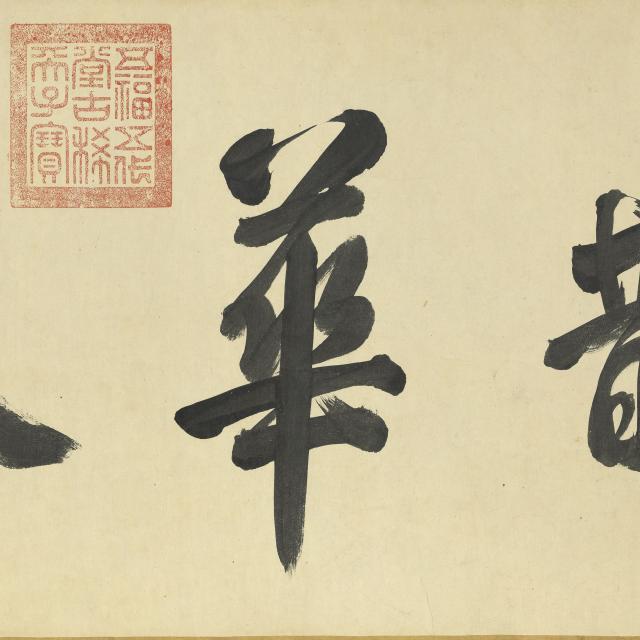 華
五福五代
堂古稀
天子寶